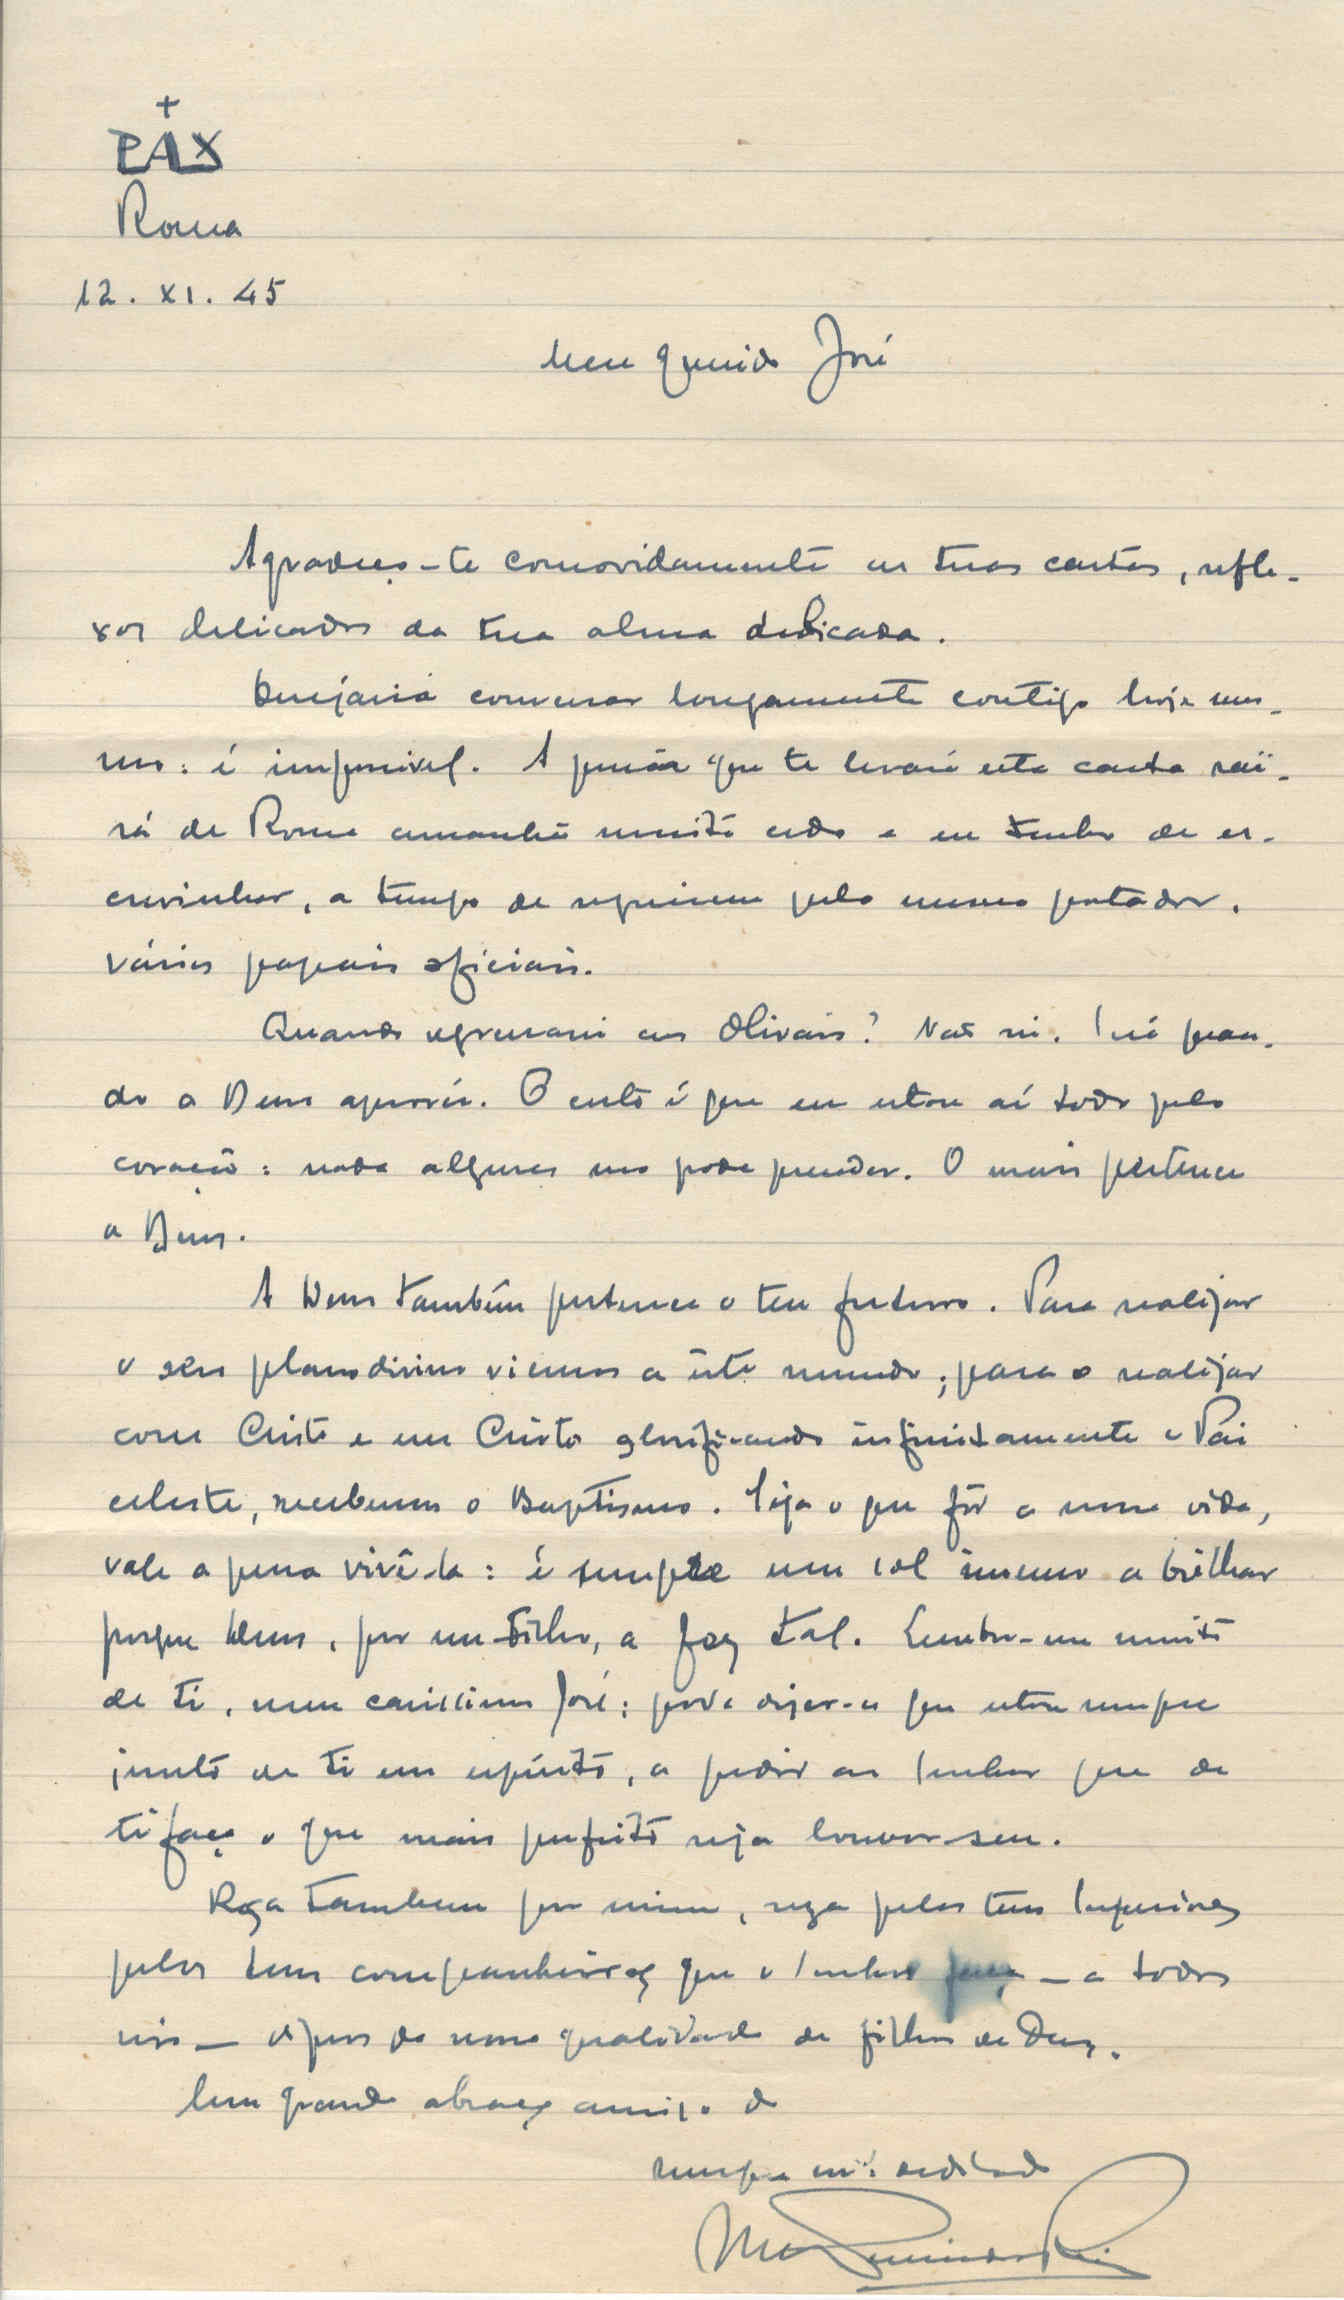 +
PAX
Roma
12. XI. 45
Meu querido José
Agradeço-te comovidamente as tuas cartas, refle-
xos delicados da tua alma dedicada.
Desejaria conversar longamente contigo hoje mes-
mo: é impossível. A pessoa que te levará esta carta sai-
rá de Roma amanhã muito cedo e eu tenho de es-
crevinhar, a tempo de seguirem pelo mesmo portador,
vários papeis oficiais.
Quando regressarei aos Olivais? Não sei. Será quan-
do a Deus aprouver. O certo é que eu estou aí todo pelo
coração: nada algures me pode prender. O mais pertence
a Deus.
A Deus também pertence o teu futuro. Para realizar
o seu plano divino viemos a êste mundo; para o realizar
com Cristo e em Cristo glorificando infinitamente o Pai
celeste, recebemos o Baptismo. Seja o que fôr a nossa vida,
vale a pena vivê-la: é sempre um sol imenso a brilhar
porque Deus, por seu Filho, a faz tal. Lembro-me muito
de ti, meu caríssimo José: posso dizer-te que estou sempre
junto de ti em espírito, a pedir ao Senhor que de
ti faça o que mais perfeito seja louvor seu.
Roga tambem por mim, roga pelos teus Superiores
pelos teus companheiros que o Senhor faça — a todos
nós — dignos da nossa qualidade de filhos de Deus.
Um grande abraço amigo do
sempre mto dedicado